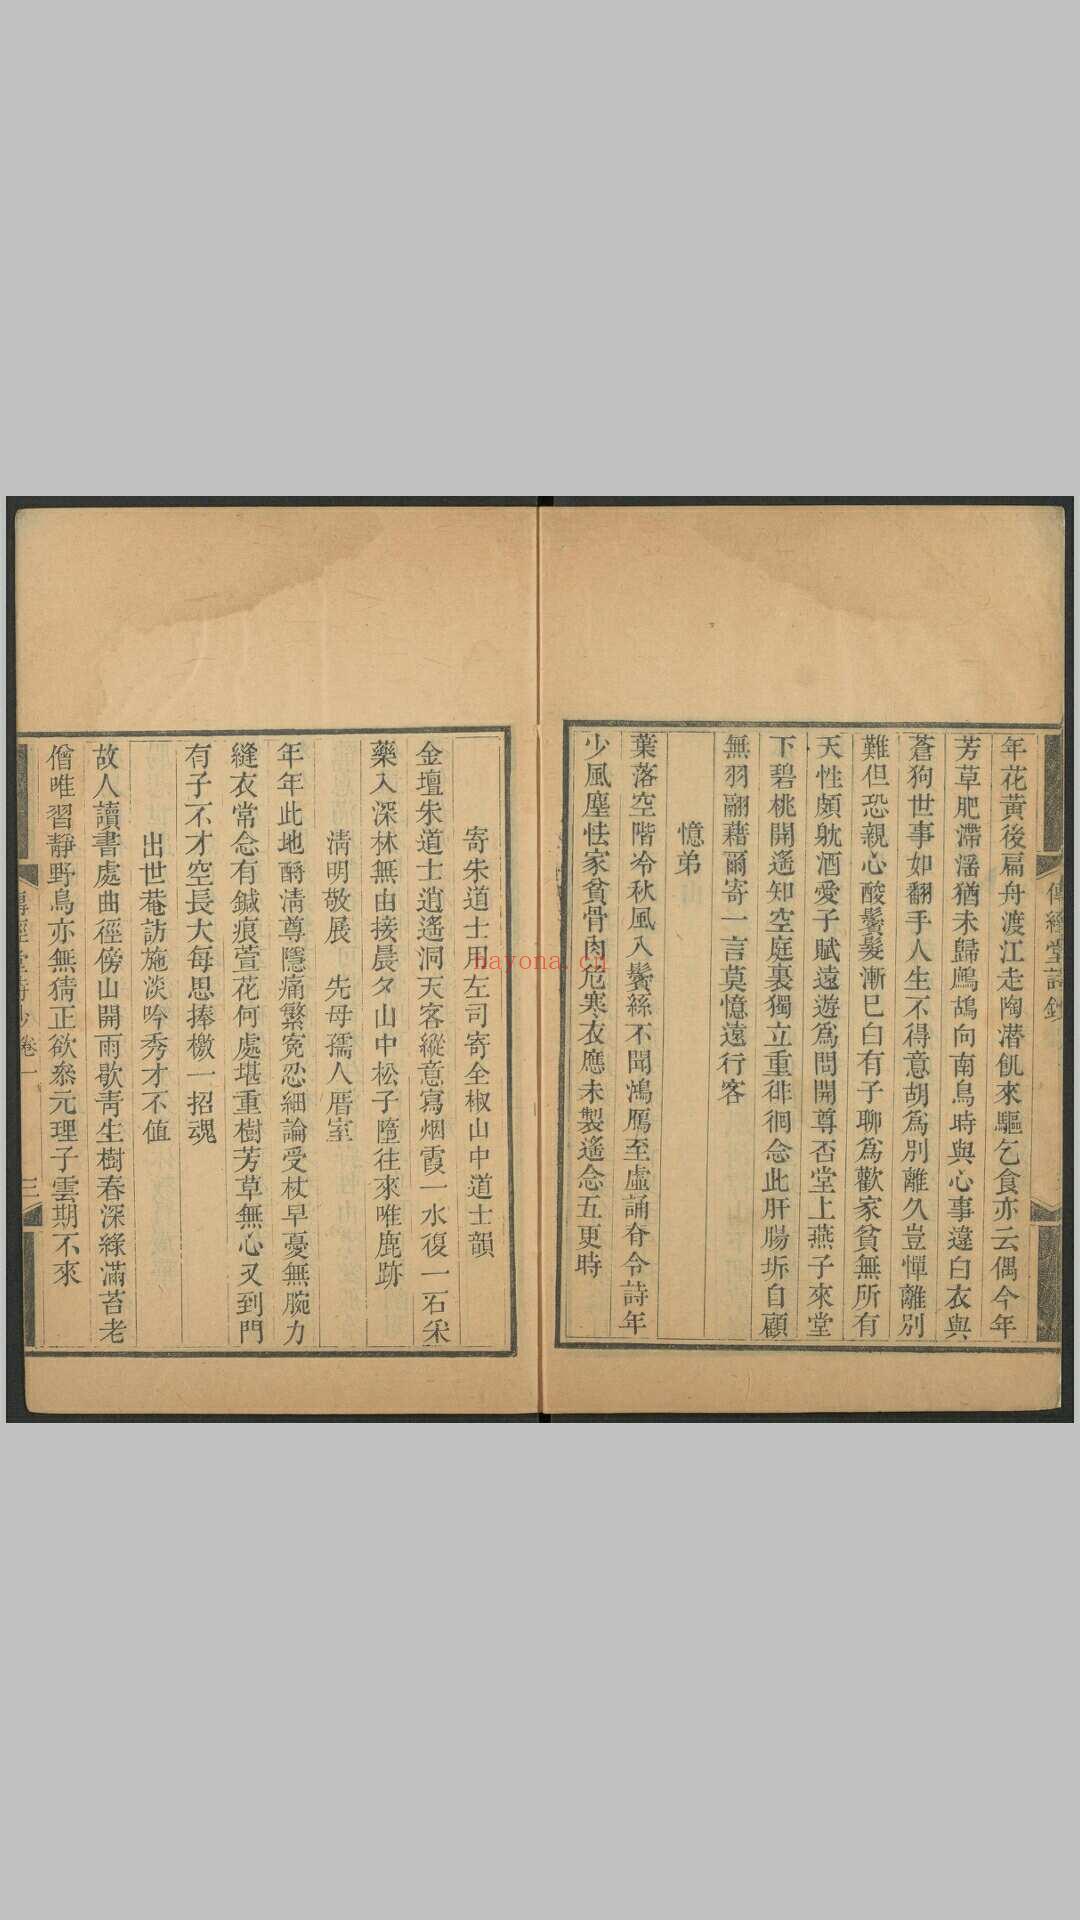 傳經堂詩鈔
年花黃後扁舟渡江走陶潛飢來驅乞食亦云偶今年
芳草肥滯滛猶未歸鷓鴣向南鳥時與心事違白衣與
蒼狗世事如翻手人生不得意胡爲別離久豈憚離別
難但恐親心酸鬢髮漸巳白有子聊爲歡家貧無所有
天性頗躭酒愛子賦遠遊爲問開尊否堂上燕子來堂
下碧桃開遙知空庭裏獨立重徘徊念此肝腸坼自顧
無羽翮藉爾寄一言莫憶遠行客
憶弟
葉落空階冷秋風入鬢絲不聞鴻鴈至虛誦脊令詩年
少風塵怯家貧骨肉危寒衣應未製遙念五更時
寄朱道士用左司寄全椒山中道士韻
金壇朱道士逍遙洞天客縱意寫烟霞一水復一石采
藥入深林無由接晨夕山中松子墮往來唯鹿跡
淸明敬展 先母孺人厝室
年年此地酹淸尊隱痛繁寃忍細論受杖早憂無腕力
縫衣常念有鍼痕萱花何處堪重樹芳草無心又到門
有子不才空長大每思捧檄一招魂
出世菴訪施淡吟秀才不值
故人讀書處曲徑傍山開雨歇靑生樹春深綠滿苔老
僧唯習靜野鳥亦無猜正欲叅元理子雲期不來
傳經堂詩鈔 卷一 三
nayona.cn